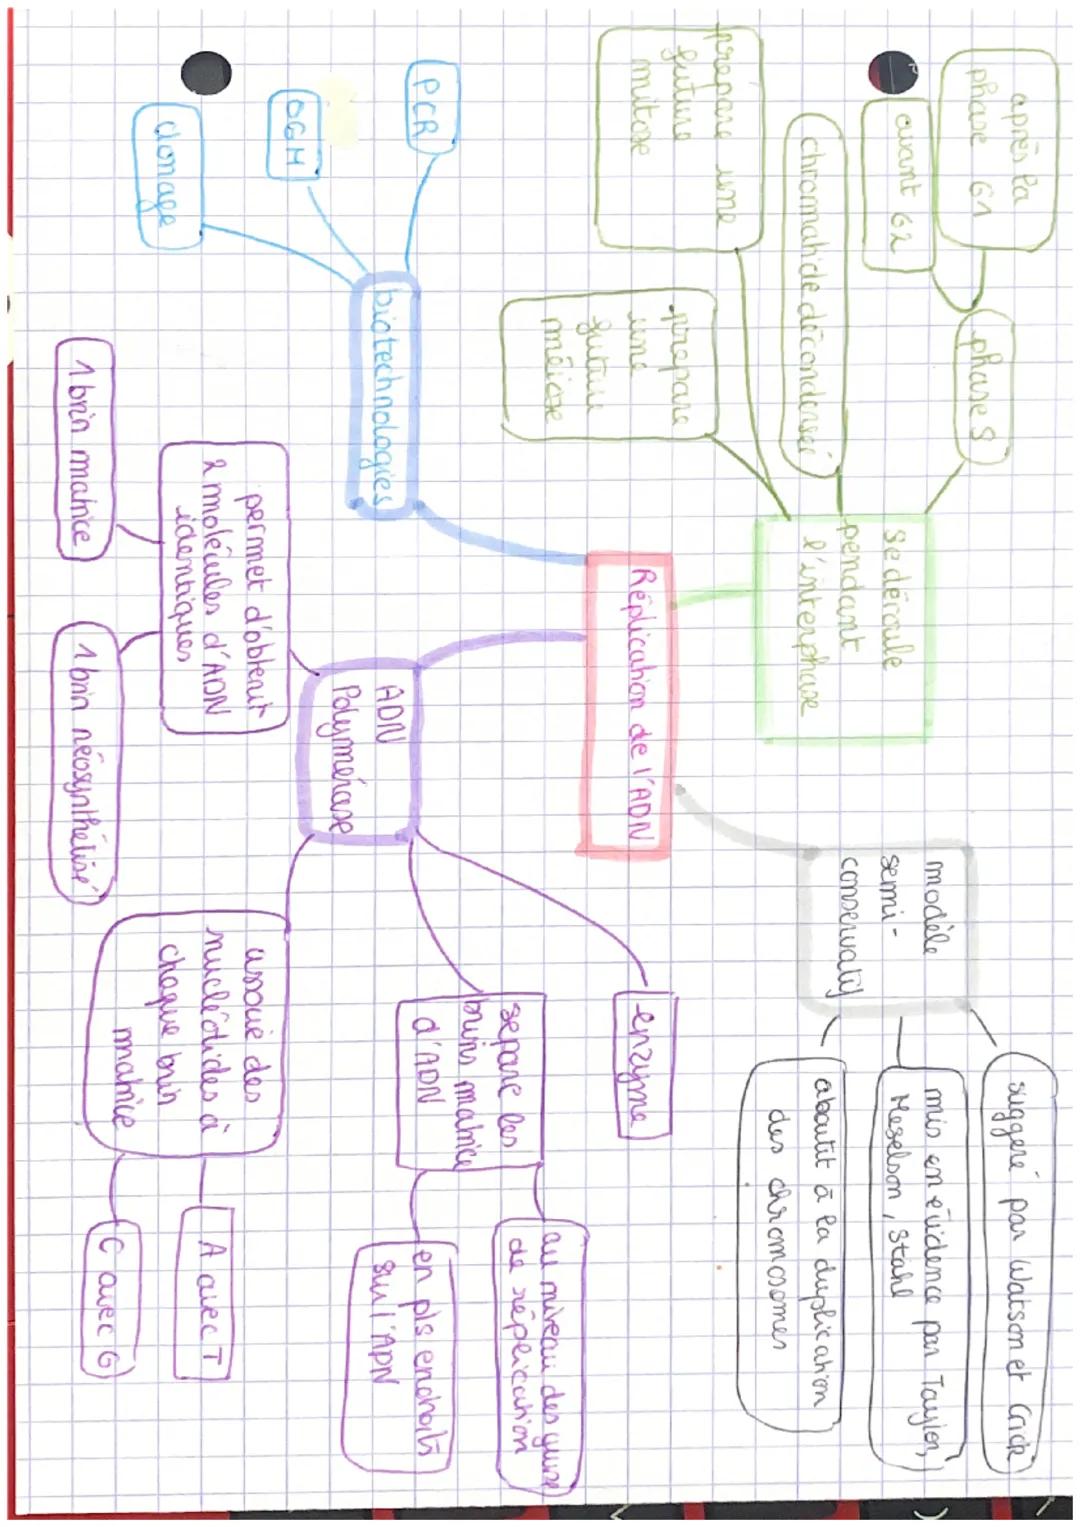 après la
phase G1
avant G2
phase S
chromatide décondensée
prépare une
future
mitose
prepare
une
future
méiose
se déroule
pendant
l'interphase
modèle
semi-
conservatif
suggéré par Watson et Crick
mis en évidence par Taylor,
Meselson, Stahl
aboutit à la duplication
des chromosomes
Réplication de l'ADN
PCR
OGM
clonage
biotechnologies
ADN
Polymérase
enzyme
separe les
brins matrice
d'ADN
au niveau des yeux
de réplication
en pls endroits
sur l'ADN
permet d'obtenir
2 molécules d'ADN
identiques
1 brin matrice
1 brin néosynthétisé
associe des
nucléotides à
chaque brin
matrice
A avec T
C avec G